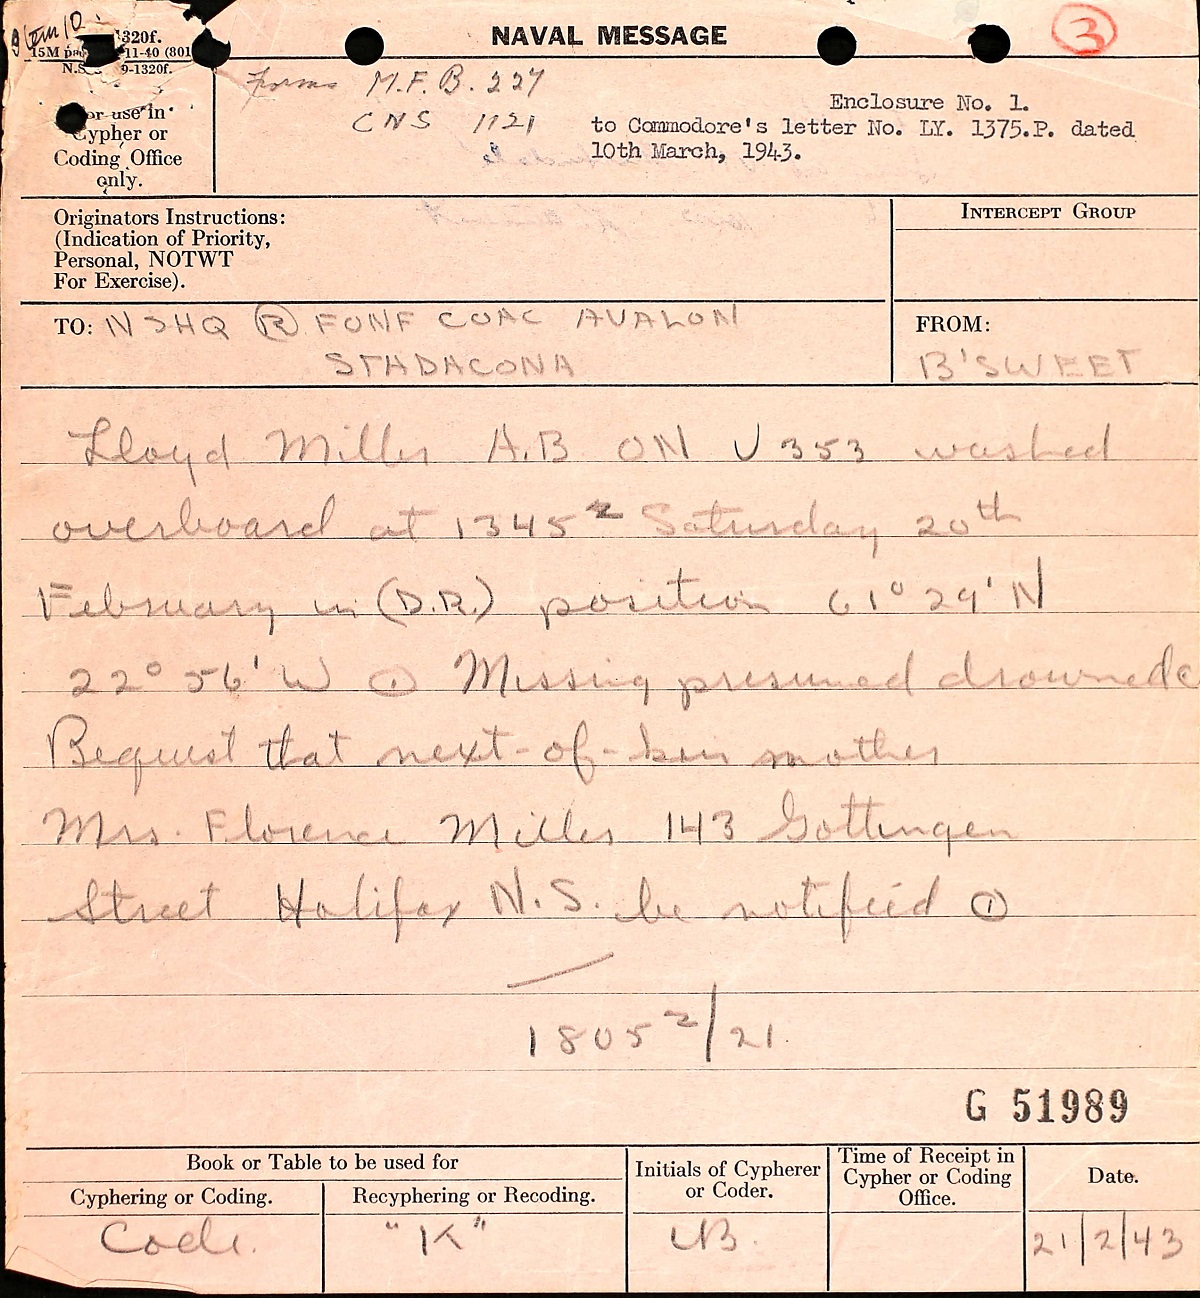 320f.
NAVAL MESSAGE
3
15M 11-40 (801
N.S. 9-1320f.
Forms M.F.B. 227
Enclosure No. 1.
CNS 1121
to Commodore's letter No. LY. 1375.P. dated
10th March, 1943.
or use in
Cypher or
Coding Office
only.
Originators Instructions:
(Indication of Priority,
Personal, NOTWT
For Exercise).
INTERCEPT GROUP
TO: NSHQ Ⓡ FONF COAC AVALON
STADACONA
FROM:
B'SWEET
Lloyd Miller A.B ON V353 washed
overboard at 1345z Saturday 20th
February in (D.R.) position 61° 29' N
22° 56' W ① Missing presumed drowned
Request that next-of-kin mother
Mrs. Florence Miller 143 Gottingen
Street Halifax N.S. be notifeid ①
1805z/21
G 51989
Book or Table to be used for
Cyphering or Coding.
Recyphering or Recoding.
Initials of Cypherer
or Coder.
Time of Receipt in
Cypher or Coding
Office.
Date.
Code.
"K"
21/2/43